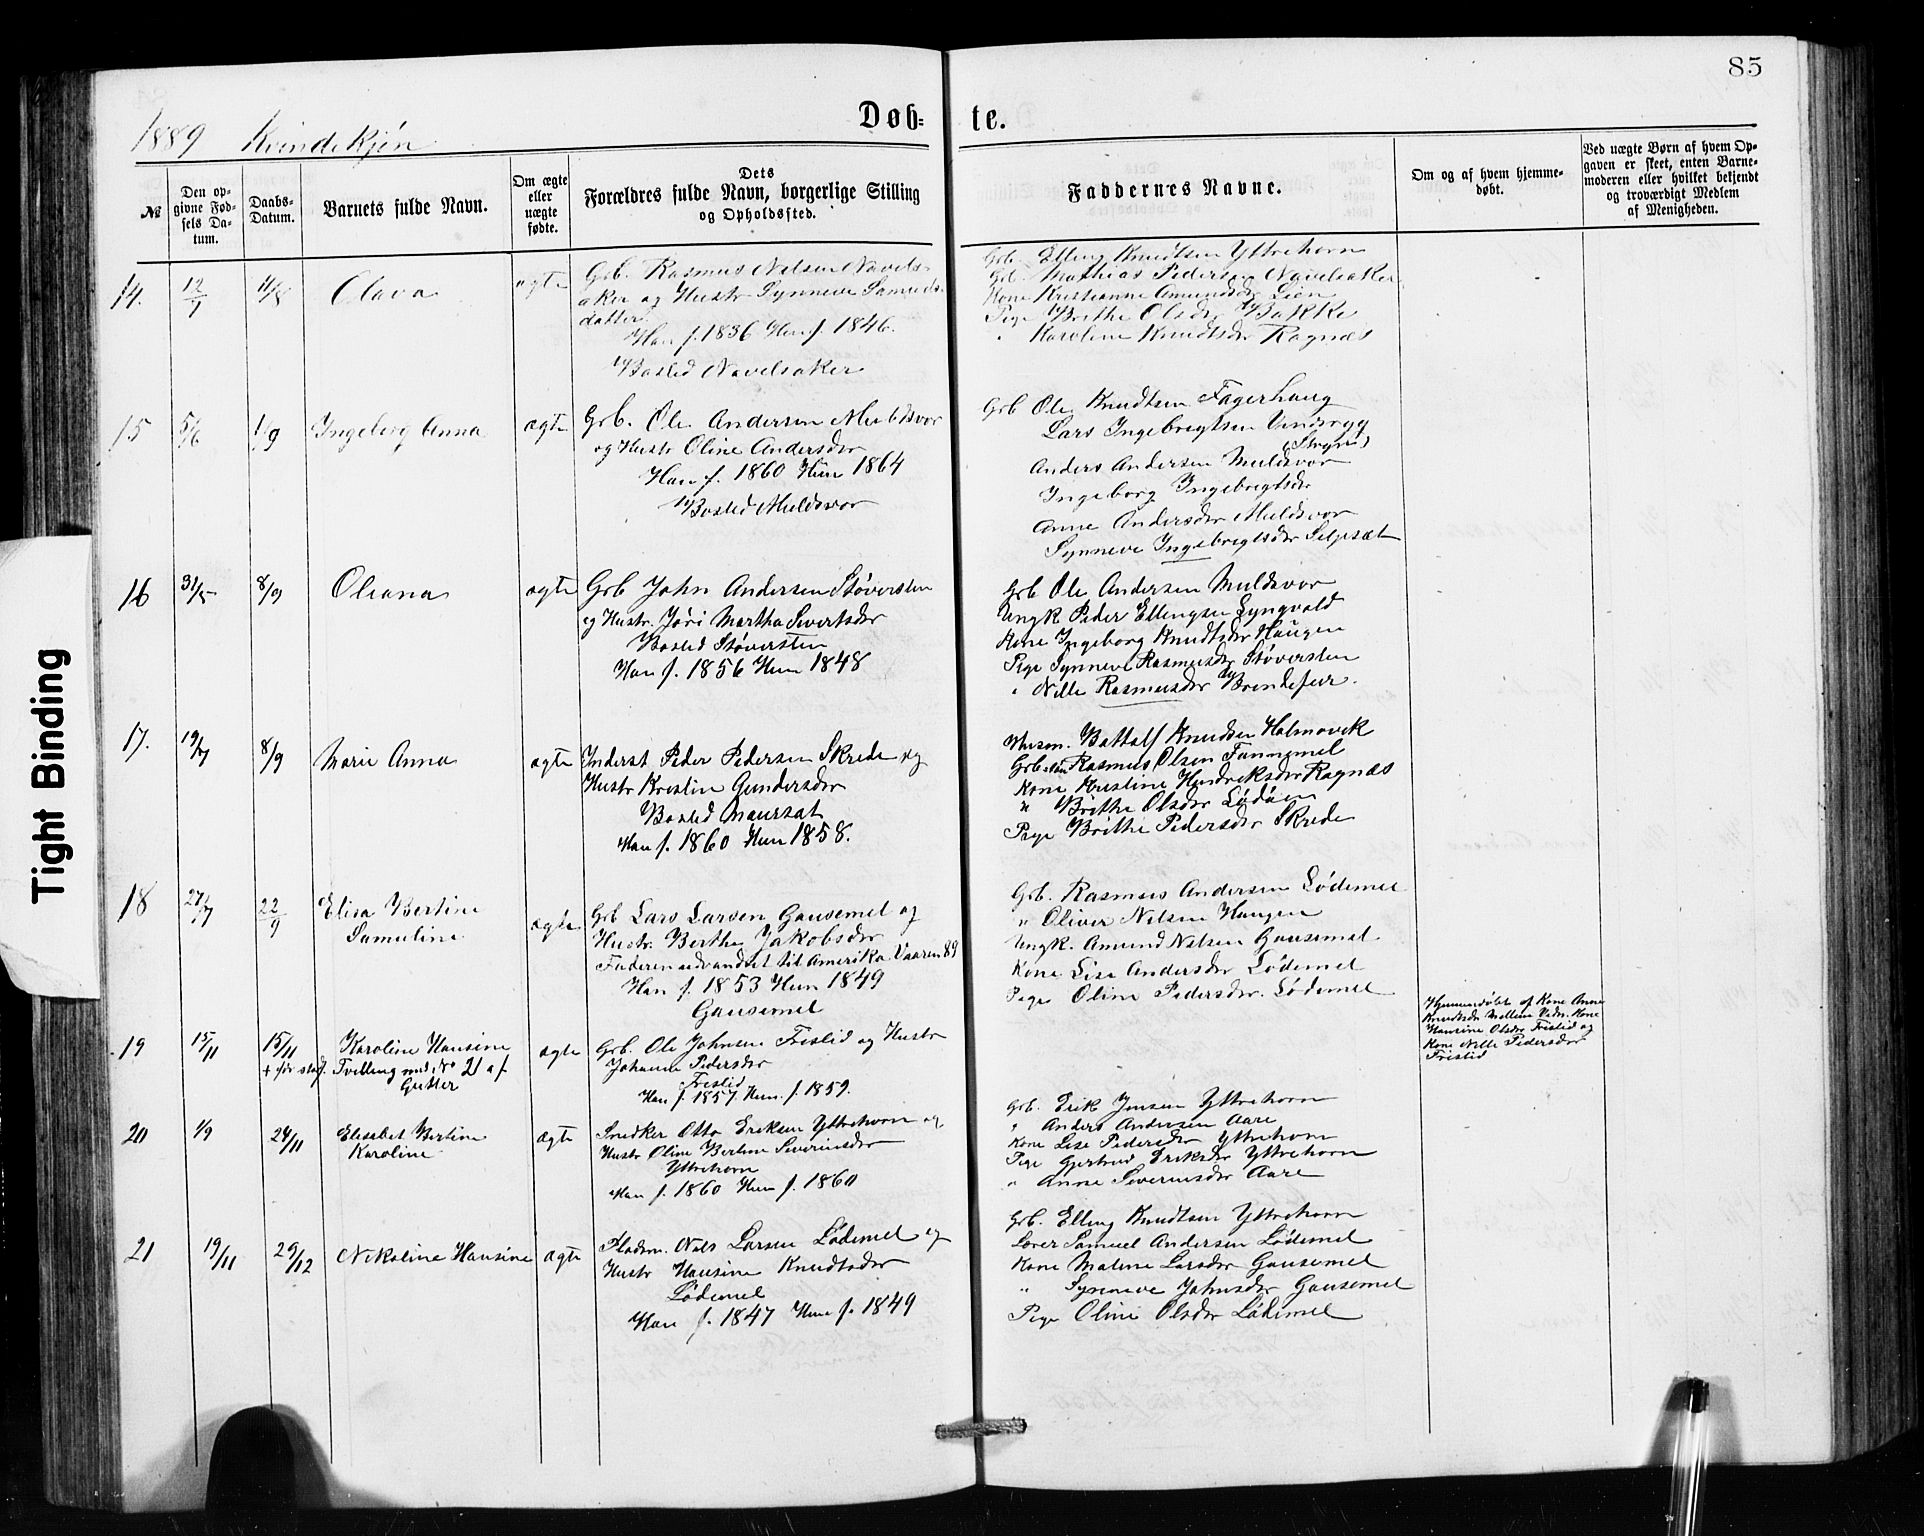 85
Døb-
te.
1889 Kvindekjøn
№
Den op-
givne Fød-
sels Da-
tum.
Daabs-
Datum.
Barnets fulde Navn.
Om ægte
eller
uægte
fødte.
Dets
Forældres fulde Navn, borgerlige Stilling
og Opholdssted.
Faddernes Navne.
Om og af hvem hjemme-
døbt.
Ved uægte Børn af hvem Op-
gaven er skeet, enten Barne-
moderen eller hvilket bekjendt
og troværdigt Medlem
af Menigheden.
14. 12/7 11/8 Olava ægte
Grb. Rasmus Nilsen Navels-
aker og Hustr Synneve Samuels-
datter.
Han f. 1836 Hun f. 1846.
Bosted Navelsaker
Grb. Elling Knudtsen Yttrehorn
Grb. Mathias Pedersen Navelsaker
Kone Kristianne Amundsdr Lien
Pige Brithe Olsdr Bakke
" Karoline Knudtsdr Ragnæs
15 5/6 1/9 Ingeborg Anna ægte
Grb. Ole Andersen Muldsvor
og Hustr Oline Andersdr
Han f. 1860 Hun 1864
Bosted Muldsvor
Grb Ole Knudtsen Fagerhaug
Lars Ingebregtsen Vindsryg
(Stryn)
Anders Andersen Muldsvor
Ingeborg Ingebregtsdr
Anne Andersdr Muldsvor
Synneve Ingebregtsdr Seljesæt
16 31/5 8/9 Oliana ægte
Grb John Andersen Støversten
og Hustr. Jøri Martha Sivertsdr
Bosted Støversten
Han f. 1856 Hun 1848
Grb Ole Andersen Muldsvor
Ungk Peder Ellingsen Lyngvold
Kone Ingeborg Knudtsdr Haugen
Pige Synneve Rasmusdr Støversten
" Nille Rasmusdr
17. 19/7 8/9 Marie Anna ægte
Inderst Peder Pedersen Skrede og
Hustr Kristin Gundersdr
Bosted Maursæt
Han f. 1860 Hun 1858.
Battalf Knudsen Holmøvik
Rasmus Olsen Fannemel
Kone Kristine Hendriksdr Ragnæs
" Brithe Olsdr Lødøen
Pige Brithe Pedersdr Skrede
18 27/7 22/9 Elisa Bertine ægte
Samuline
Grb Lars Larsen Gausemel og
Hustr. Berthe Jakobsdr
Faderen udvandret til Amerika Vaaren 89
Han f. 1853 Hun 1849
Gausemel
Grb. Rasmus Andersen Lødemel
" Oliver Nilsen Haugen
Ungk. Amund Nilsen Gausemel
Kone Lise Andersdr Lødemel
Pige Oline Pedersdr. Lødemel
19 15/11 15/11 Karoline Hansine ægte
+ før stadf. Tvilling med No 21 af
Gutter
Grb. Ole Johnsen Frislid og Hustr
Johanne Pedersdr
Frislid
Han f. 1857 Hun. f. 1859.
Hjemmedøbt af Kone Anne
Knudtsdr Mellem Kone
Hansine Olsdr Frislid og
Kone Nille Pedersdr
Frislid
20 1/9 24/11 Elisabet Bertine ægte
Karoline
Snedker Otto Eriksen Yttrehorn og
Hustr Oline Bertine Severinsdr
Yttrehorn
Han f. 1860 Hun f. 1860
Grb. Erik Jensen Yttrehorn
" Anders Andersen Aare
Kone Lise Pedersdr Yttrehorn
Pige Gjertrud Eriksdr Yttrehorn
" Anne Severinsdr Aare
21 19/11 29/12 Nikoline Hansine ægte
Pladsm. Nils Larsen Lødemel og
Hustr Hansine Knudtsdr
Lødemel
Han f. 1847 Hun f. 1849
Grb. Elling Knudtsen Yttrehorn
Lærer Samuel Andersen Lødemel
Kone Malene Larsdr Gausemel
" Synneve Johnsdr Gausemel
Pige Oline Olsdr Lødemel
Tight Binding